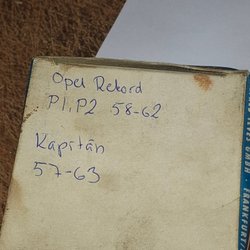 Opel Rekord
P1,P2 58-62
Kapitän
57-63
GMBH · FRANKFURT